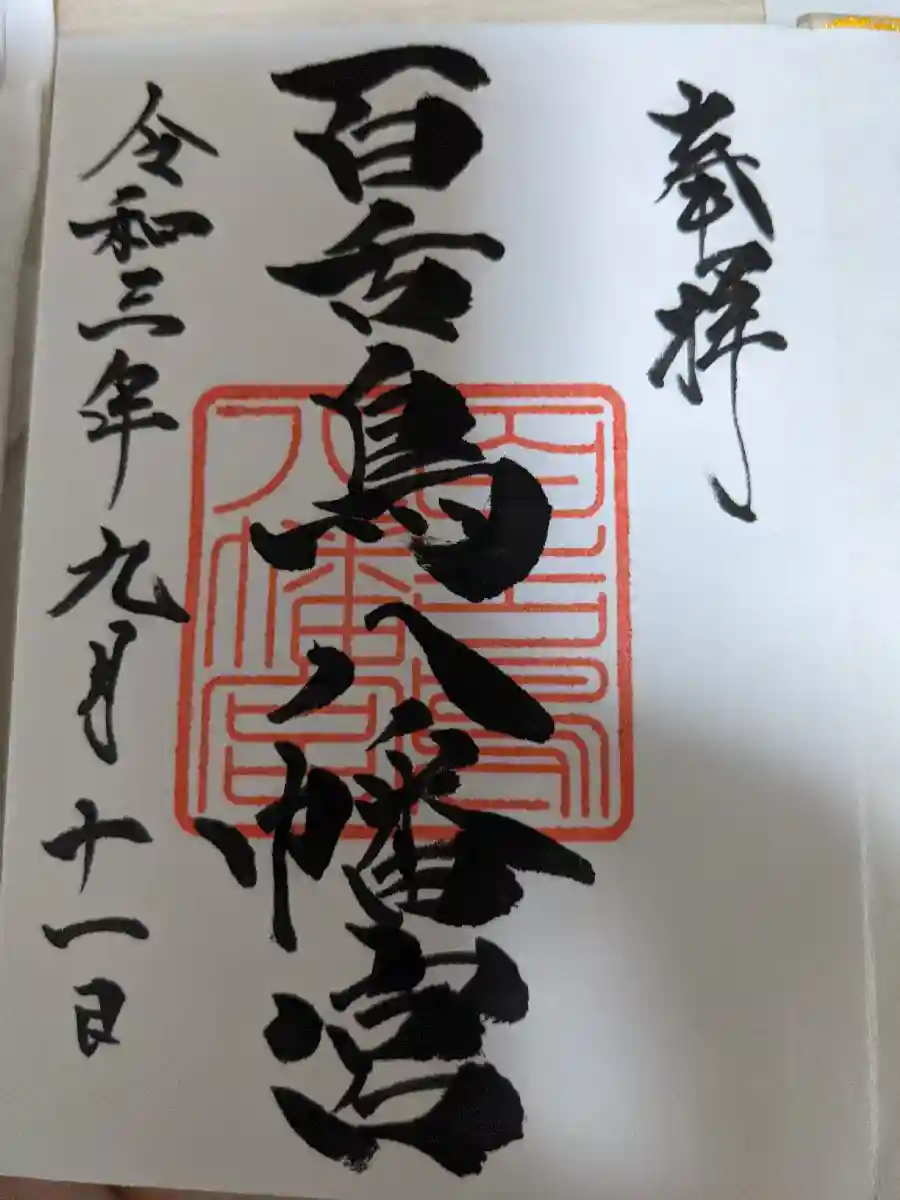 奉拝
百舌鳥八幡宮
百舌鳥
八幡宮
令和三年九月十一日